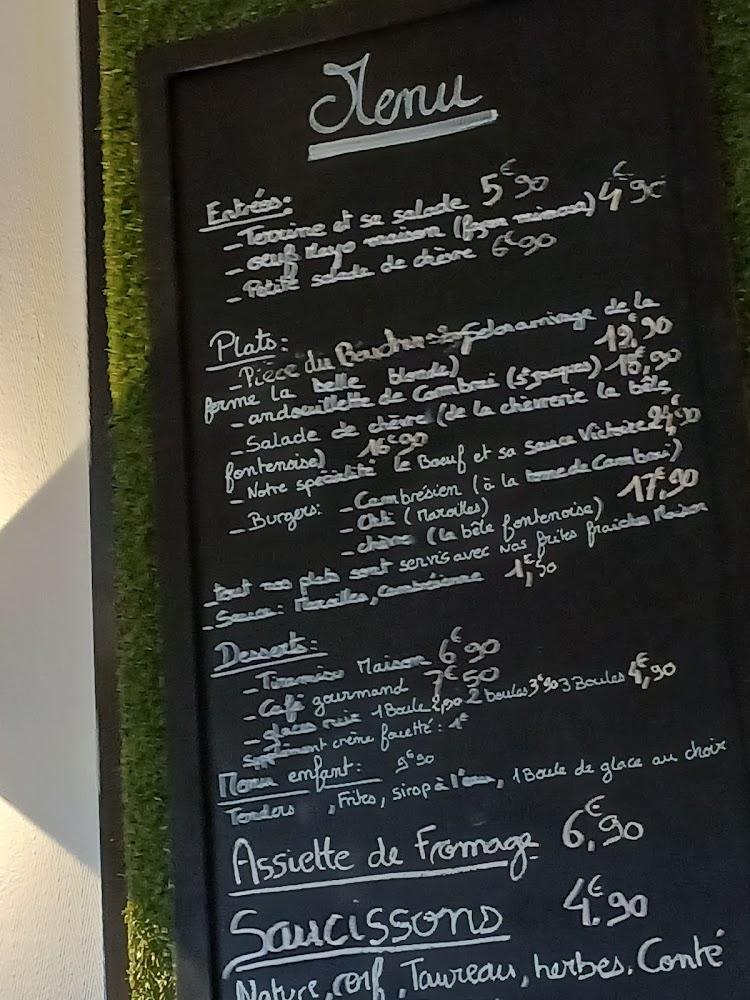 Menu
Entrées:
- Terrine et sa salade 5€90
- oeuf Mayo maison (façon mimosa) 4€90
- Petite salade de chèvre 6€90
Plats:
- Pièce du Boucher de la
ferme la belle blonde) 19,€90
- andouillette de Cambrai (St jacques) 18,€90
- Salade de chèvre (de la chèvrerie la bêle
fontenoise) 16€90
- Notre spécialité le Boeuf et sa sauce Victoire 24,€90
- Burgers: - Cambrésien (à la tome de Cambrai)
- Chti (Maroilles) 17,€90
- chèvre (la bêle fontenoise)
- tout nos plats sont servis avec nos frites fraiches Maison
- Sauce: Maroilles, cambrésienne 1,€50
Desserts:
- Tiramisu Maison 6€90
- Café gourmand 7€50
- glaces 1 Boule 2,00 2 boules 3€90 3 Boules 4,€90
supplément crème fouetté: 1€
Menu enfant: 9€90
Tenders , Frites, sirop à l'eau, 1 Boule de glace au choix
Assiette de Fromage 6,€90
Saucissons 4€90
Nature, cerf, Taureau, herbes, Conté